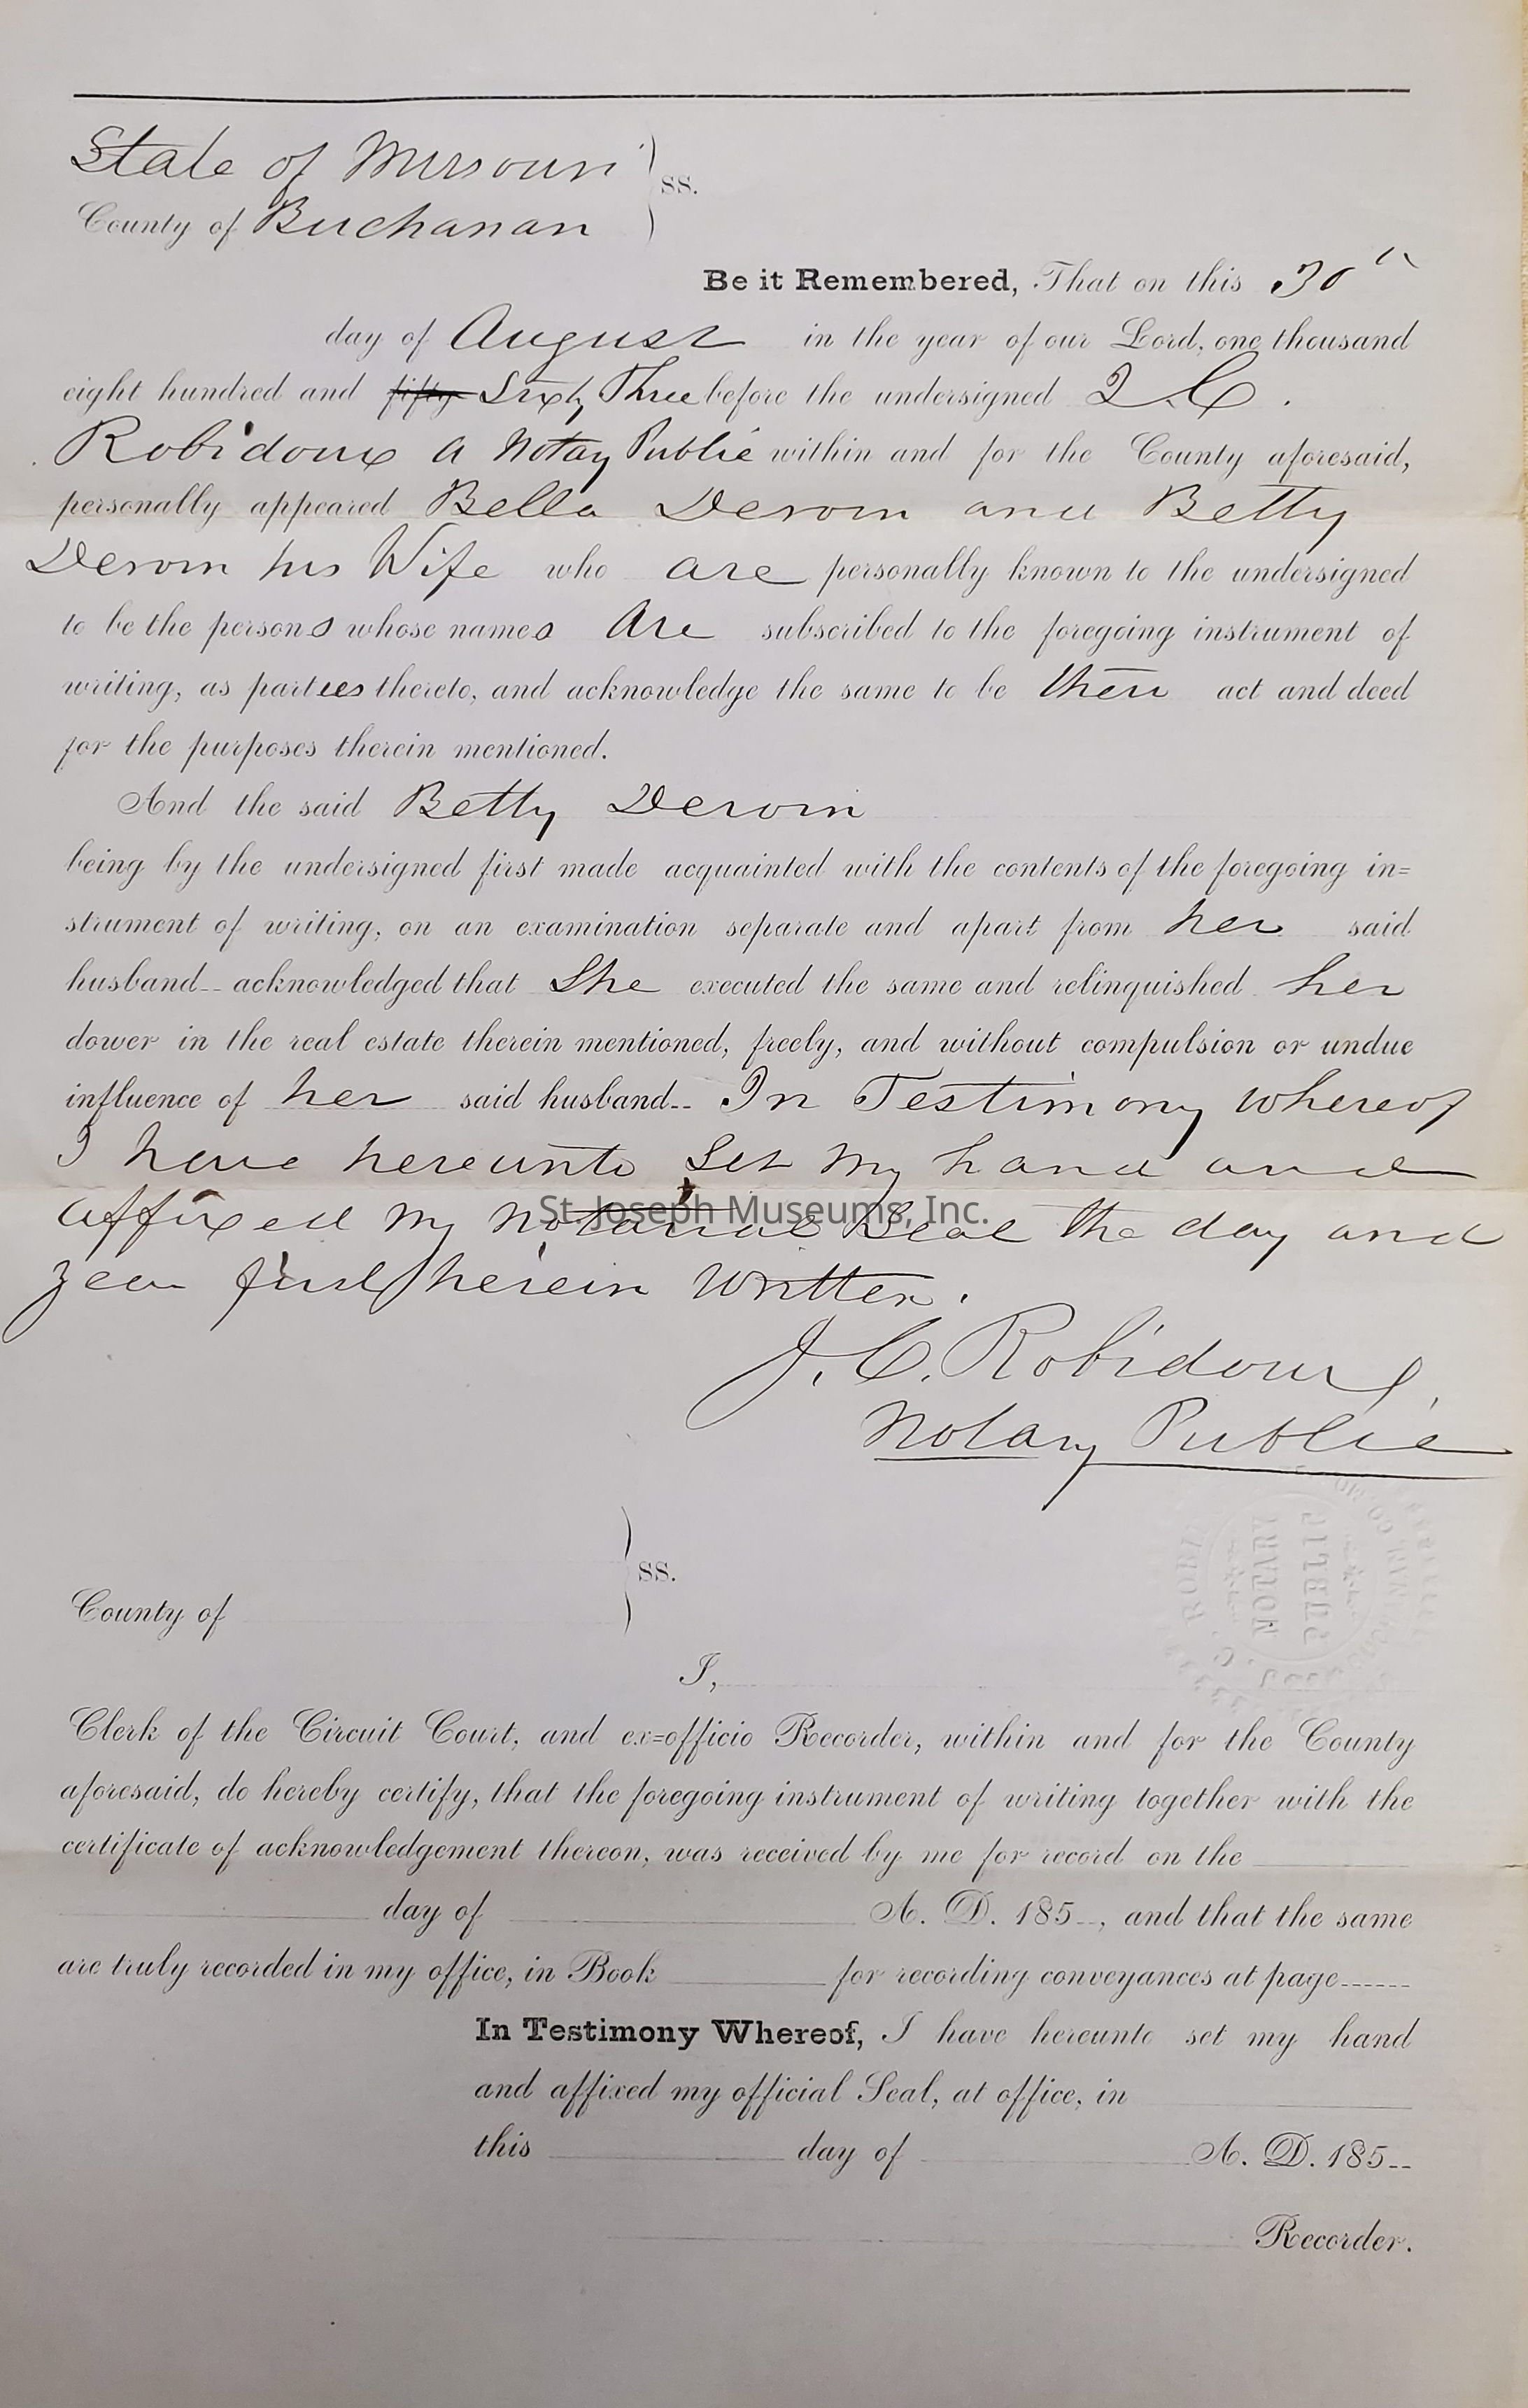 State of Missouri
ss.
County of Buchanan
Be it Remembered, That on this 30th
day of August in the year of our Lord, one thousand
eight hundred and fifty Sixty Three before the undersigned J. C.
Robidoux a Notay Public within and for the County aforesaid,
personally appeared Bella Deroin and Betty
Deroin his Wife who are personally known to the undersigned
to be the persons whose names are subscribed to the foregoing instrument of
writing, as partees thereto, and acknowledge the same to be their act and deed
for the purposes therein mentioned.
And the said Betty Deroin
being by the undersigned first made acquainted with the contents of the foregoing in=
strument of writing, on an examination separate and apart from her said
husband acknowledged that She executed the same and relinquished her
dower in the real estate therein mentioned, freely, and without compulsion or undue
influence of her said husband In Testimony whereof
I have hereunto Set my hand and
affixed my Notarial Seal the day and
year first herein written.
St. Joseph Museums, Inc.
J. C. Robidoux
Notary Public
NOTARY PUBLIC
ss.
County of
I,
Clerk of the Circuit Court, and ex=officio Recorder, within and for the County
aforesaid, do hereby certify, that the foregoing instrument of writing together with the
certificate of acknowledgement thereon, was received by me for record on the
day of A. D. 185 , and that the same
are truly recorded in my office, in Book for recording conveyances at page
In Testimony Whereof, I have hereunto set my hand
and affixed my official Seal, at office, in
this day of A. D. 185
Recorder.